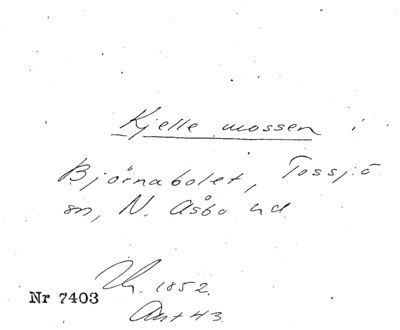 Kjelle mossen i
Björnabolet, Tossjö
sn, N. Åsbo hd.
Th. 1852.
Nr 7403
Ant 43